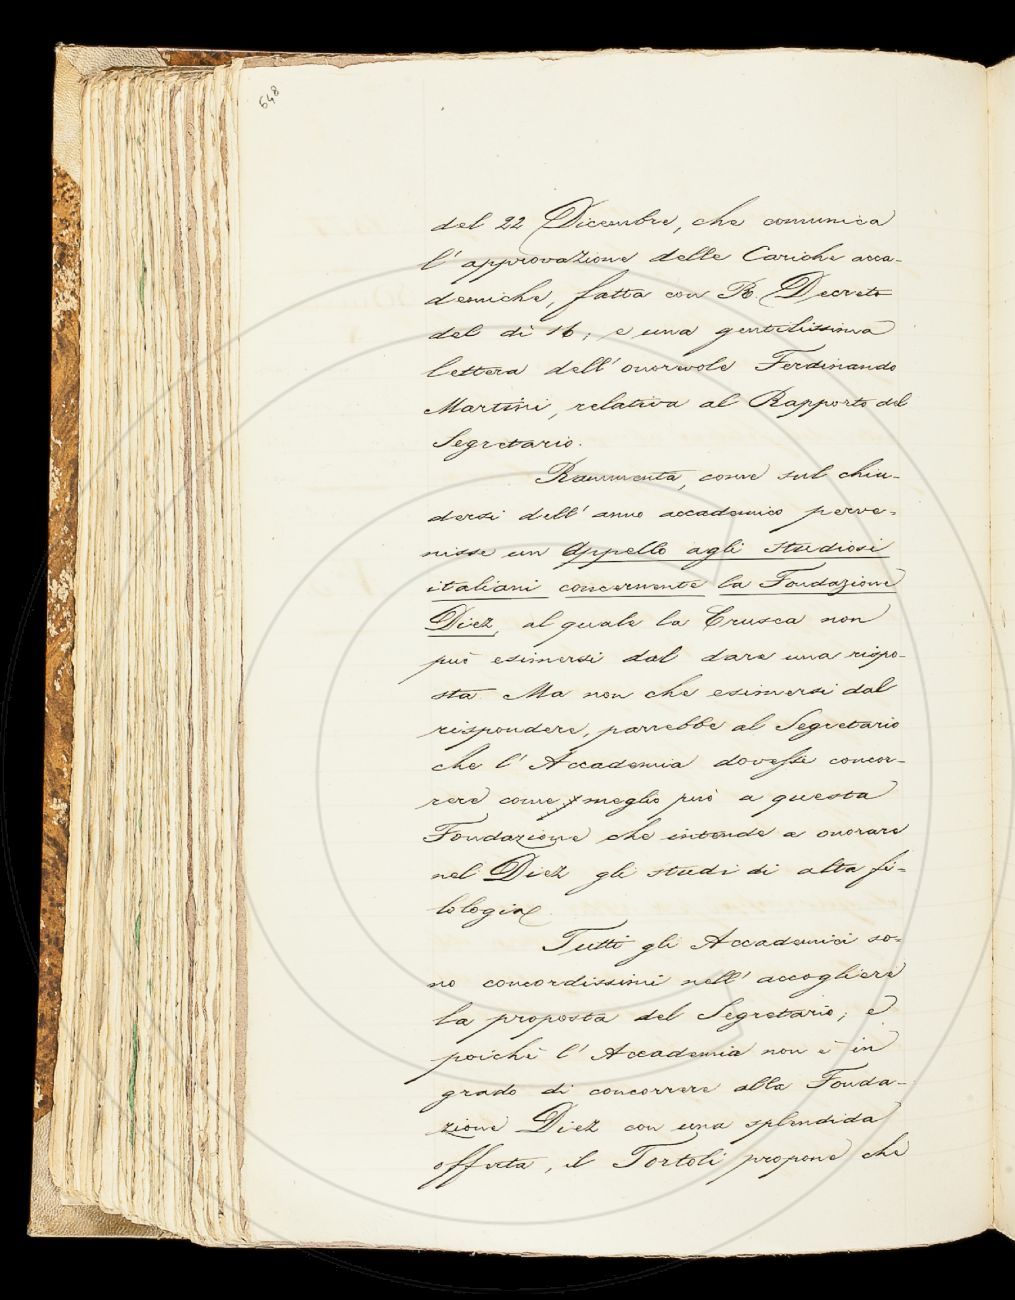 648
del 22 Dicembre, che comunica
l'approvazione delle Cariche acca-
demiche, fatta con R. Decreto
del dì 16; e una gentilissima
lettera dell'onorevole Ferdinando
Martini, relativa al Rapporto del
Segretario.
Rammenta, come sul chiu-
dersi dell'anno accademico perve-
nisse un Appello agli studiosi
italiani concernente la Fondazione
Diez, al quale la Crusca non
può esimersi dal dare una rispo-
sta. Ma non che esimersi dal
rispondere, parrebbe al Segretario
che l'Accademia dovesse concor-
rere come meglio può a questa
Fondazione che intende a onorare
nel Diez gli studi di alta fi-
lologia.
Tutti gli Accademici so-
no concordissimi nell'accogliere
la proposta del Segretario; e
poichè l'Accademia non è in
grado di concorrere alla Fonda-
zione Diez con una splendida
offerta, il Tortoli propone che